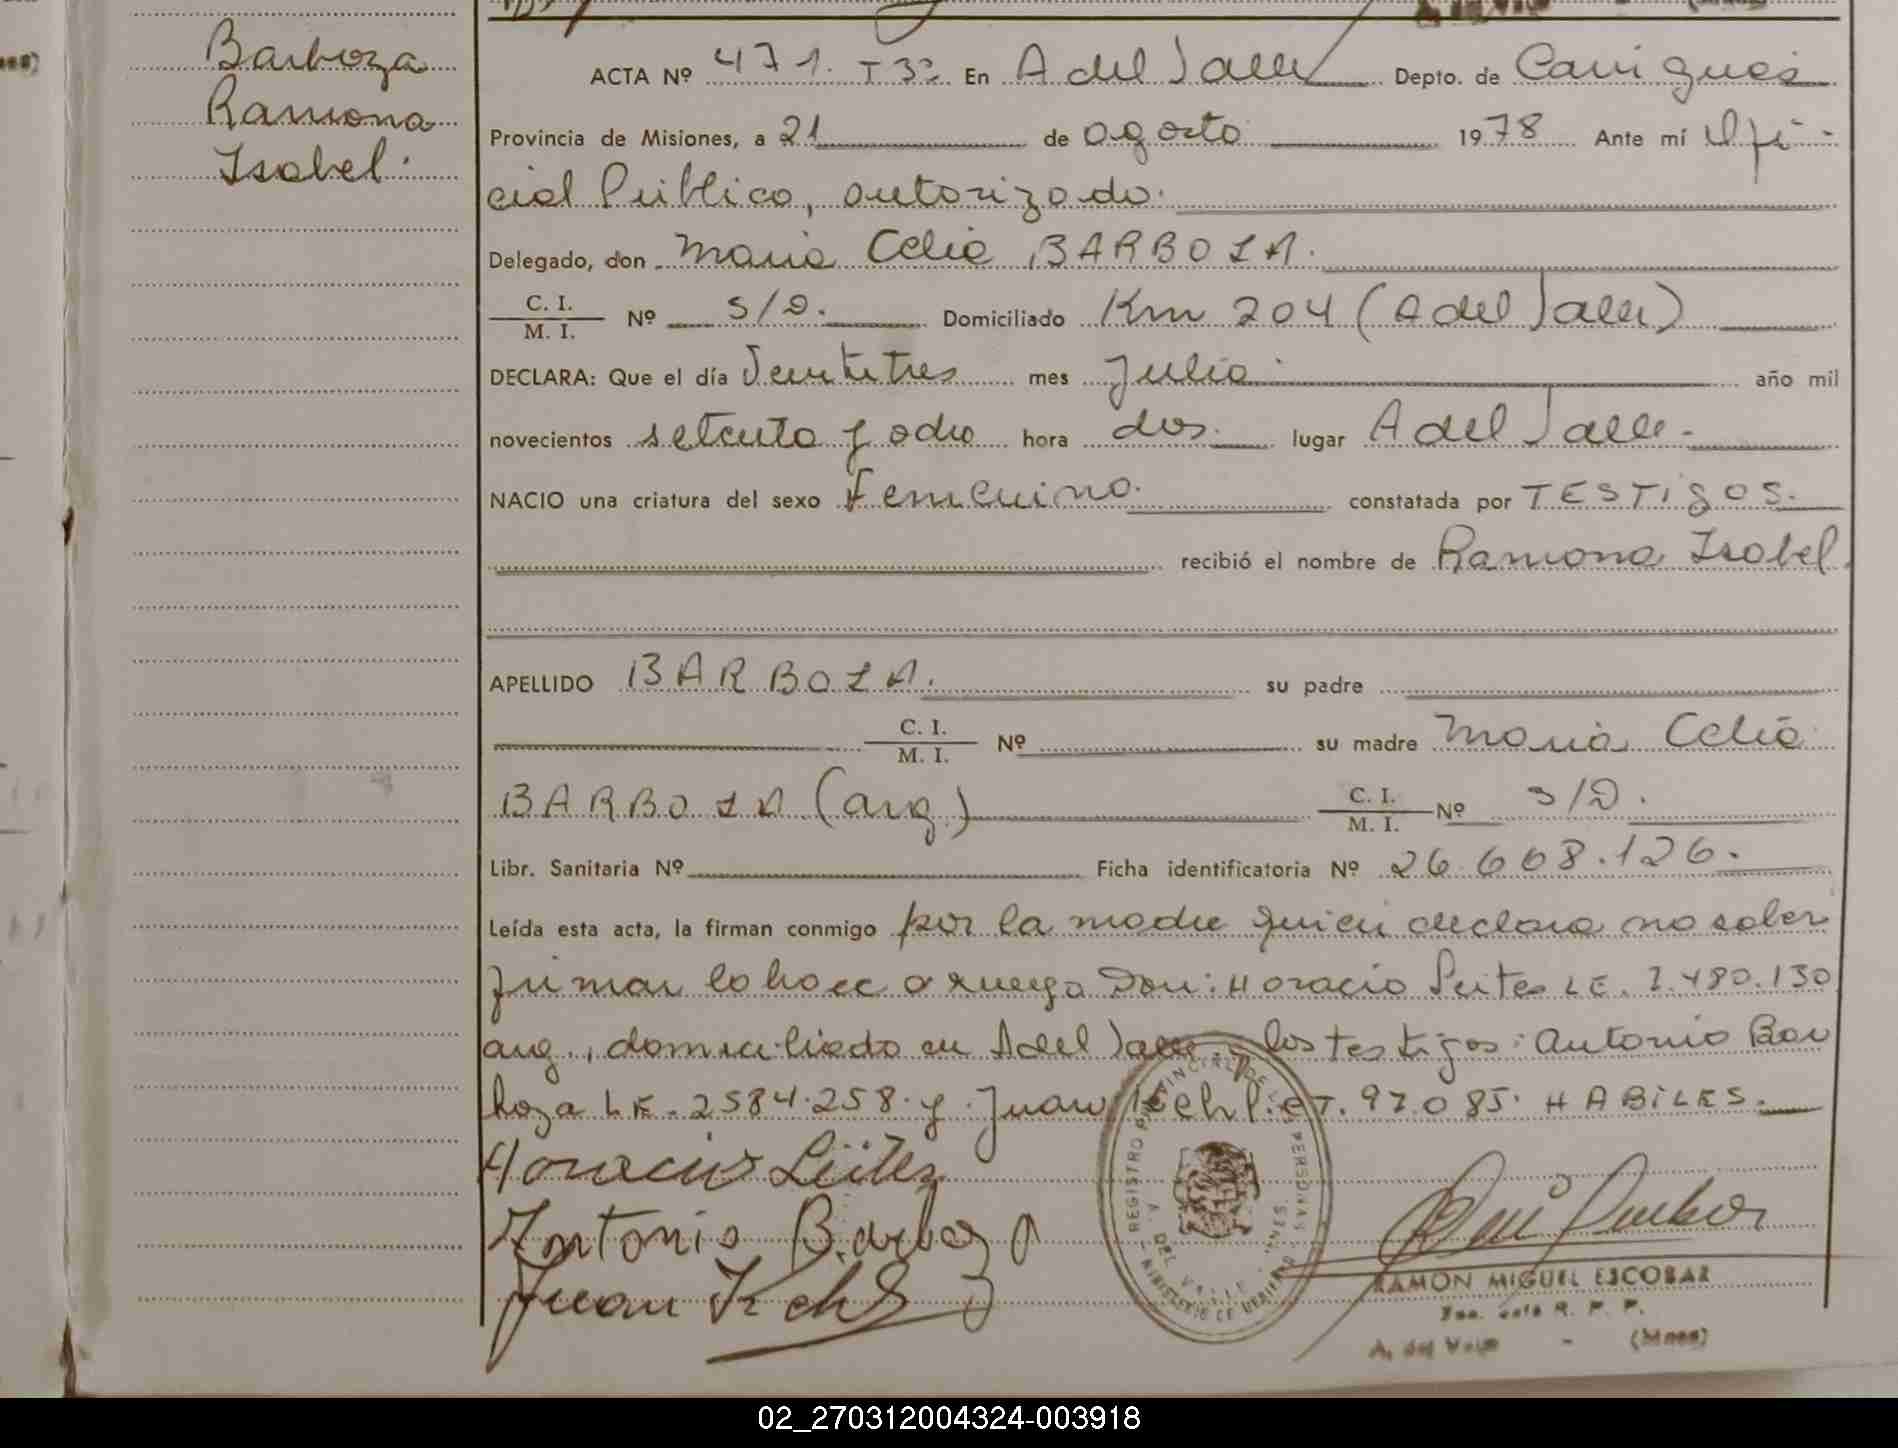 Barboza
Ramona
Isabel.
ACTA Nº 471. T3º En A del Valle Depto. de Cainguás
Provincia de Misiones, a 21 de agosto 1978 Ante mí Ofi-
cial Público, autorizado.
Delegado, don Maria Celia BARBOZA.
C. I.
M. I. Nº S/D. Domiciliado Km 204 (A del Valle)
DECLARA: Que el día Veintitres mes Julio año mil
novecientos setenta y ocho hora dos. lugar A del Valle.
NACIO una criatura del sexo Femenino. constatada por TESTIGOS.
recibió el nombre de Ramona Isabel.
APELLIDO BARBOZA. su padre
C. I.
M. I. Nº su madre Maria Celia
BARBOZA (arg.) C. I.
M. I. Nº S/D.
Libr. Sanitaria Nº Ficha identificatoria Nº 26.668.126.
Leída esta acta, la firman conmigo por la madre quien declara no saber
firmar lo hace a ruego Don: Horacio LE. 7.480.130
arg., domiciliado en A del Valle y los testigos: Antonio Bar
boza LE. 2584.258. y Juan Kehl. CT. 97.085. HABILES.
Horacio
Antonio Barboza
Juan Kehl
REGISTRO PROVINCIAL DE LAS PERSONAS
A. DEL VALLE
MINISTERIO DE GOBIERNO
RAMON MIGUEL ESCOBAR
R. P. P.
A. del Valle - (Mnes)
02_270312004324-003918